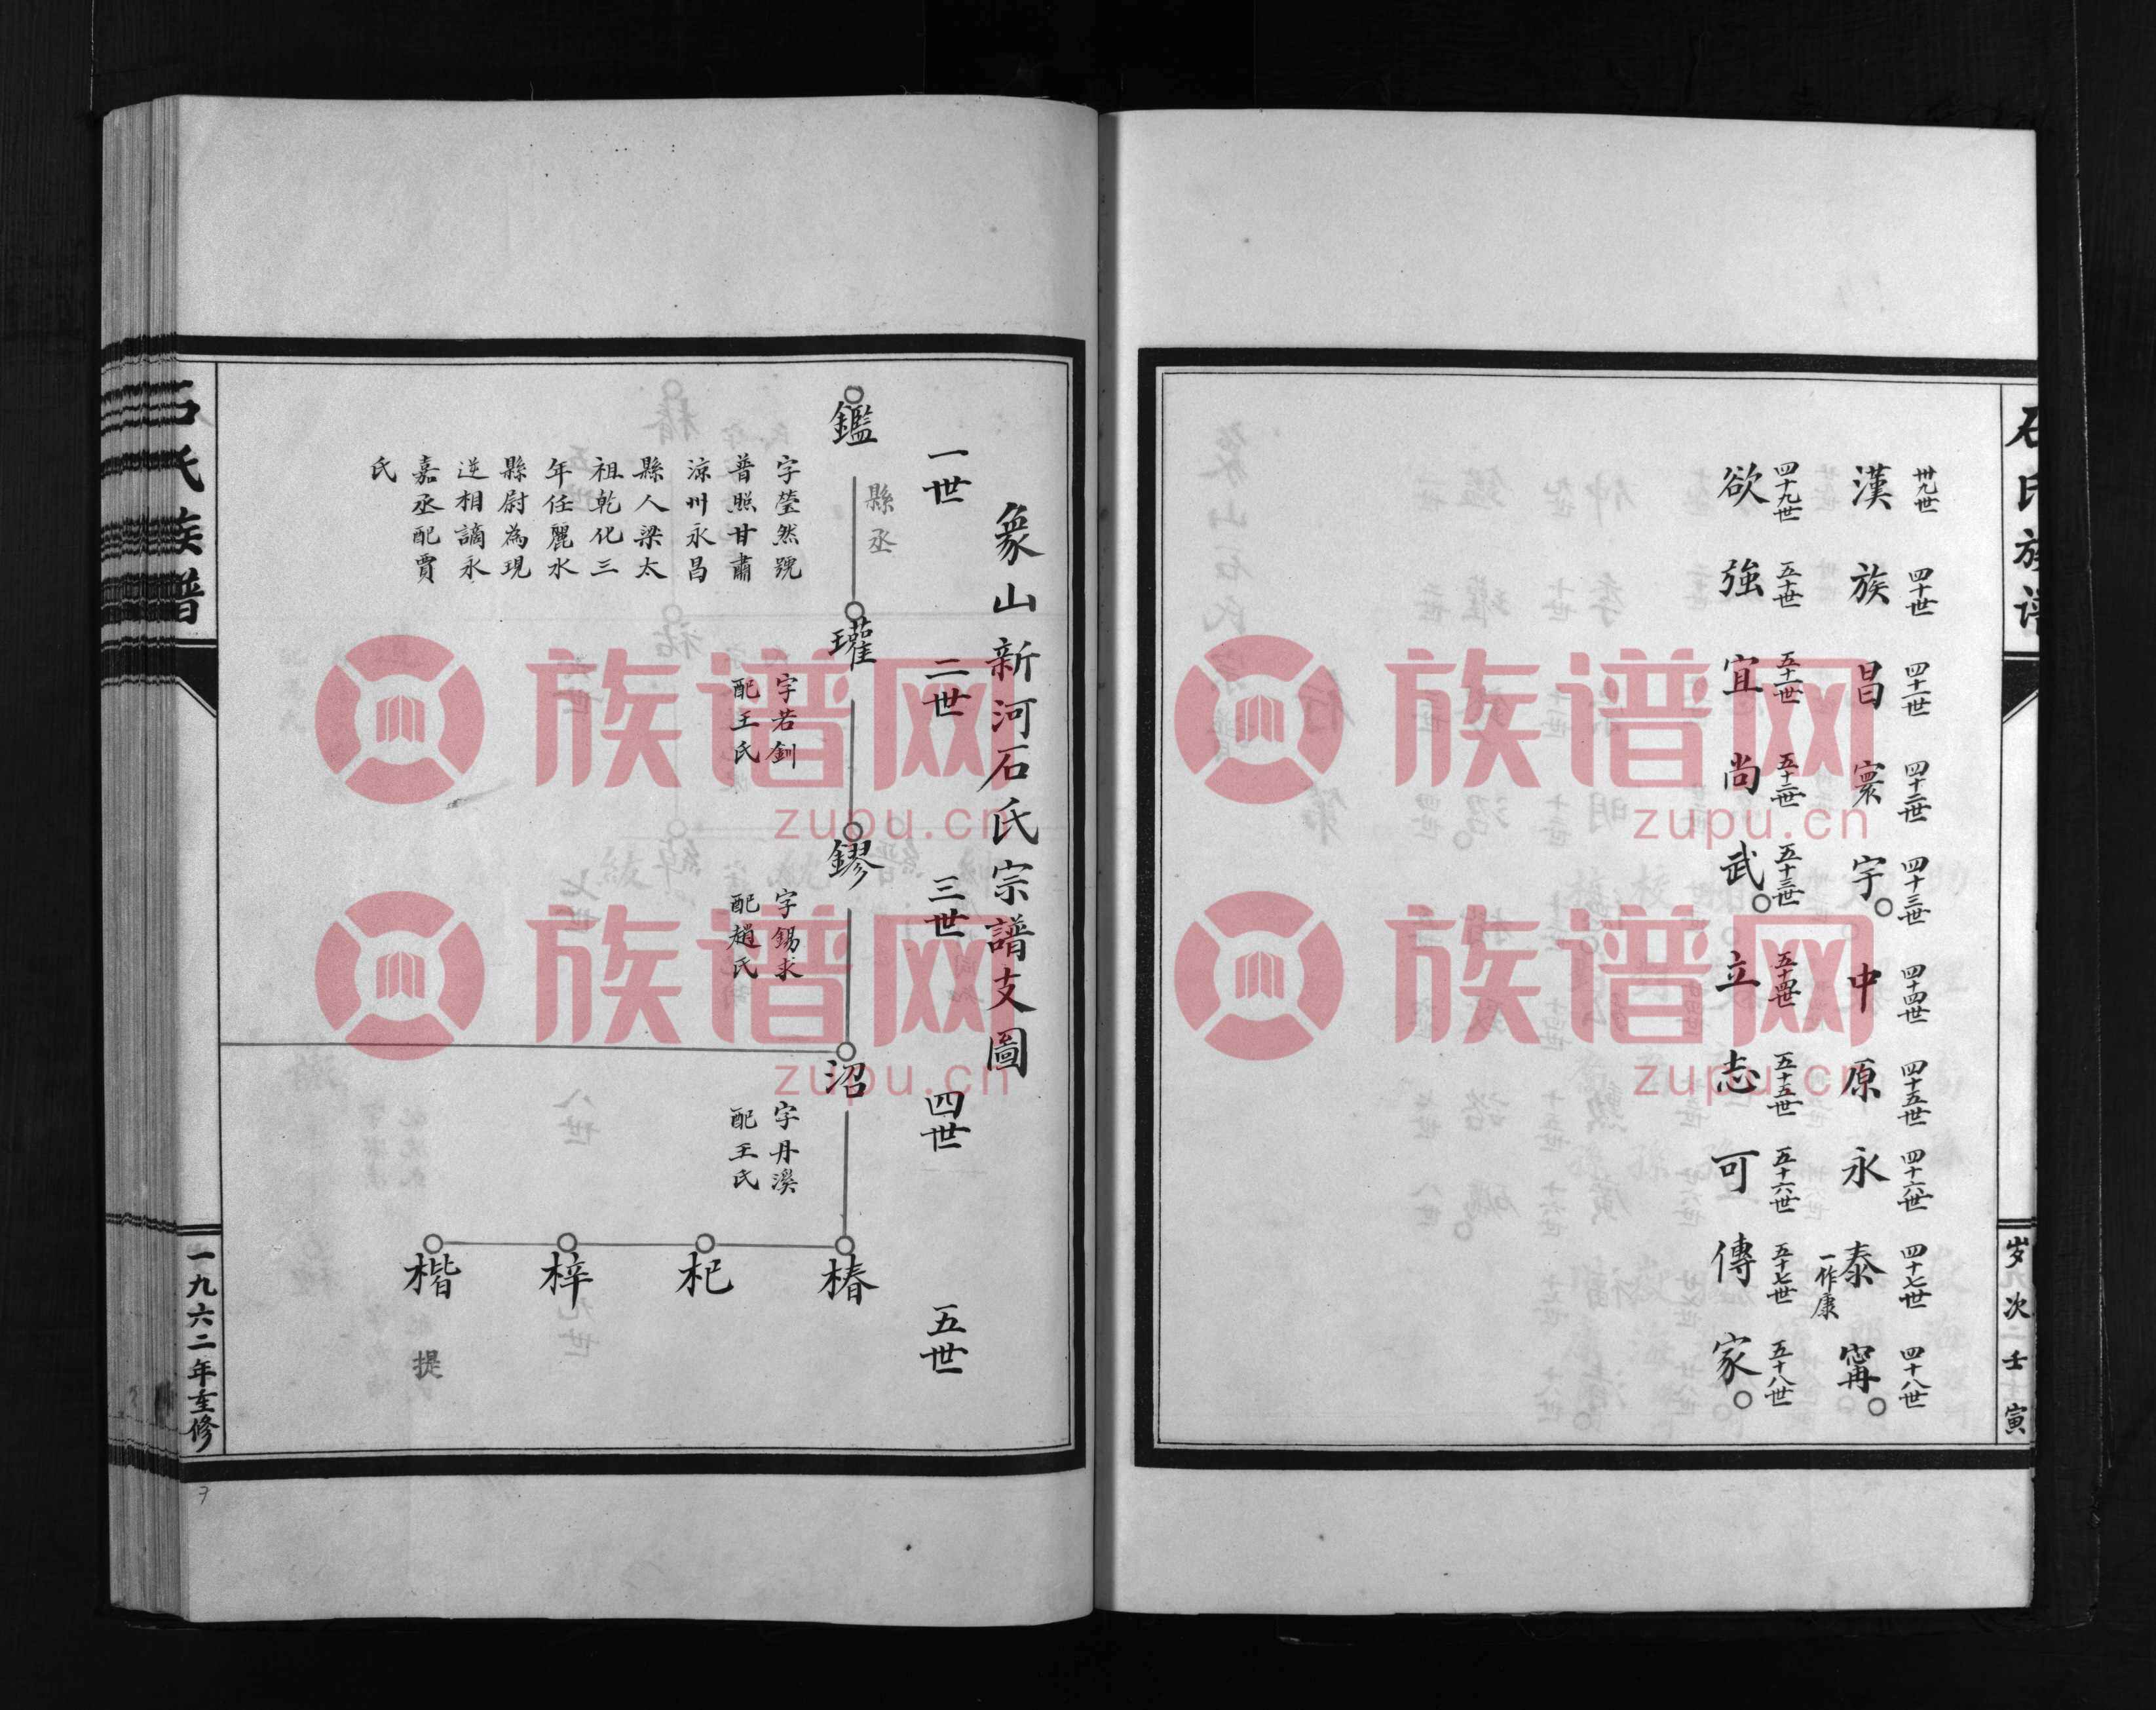 石氏族譜
岁次壬寅
卅九世 四十世 四十一世 四十二世 四十三世 四十四世 四十五世 四十六世 四十七世 四十八世
漢族昌寰宇。中原永泰甯。
一作康
四十九世 五十世 五十一世 五十二世 五十三世 五十四世 五十五世 五十六世 五十七世 五十八世
欲強宜尚武。立志可傳家。
象山新河石氏宗譜支圖
一世 二世 三世 四世 五世
縣丞
鑑
瓘
鏐
沼
椿
字瑩然號
普照甘肅
涼州永昌
縣人梁太
祖乾化三
年任麗水
縣尉為現
逆相謫永
嘉丞配賈
氏
字若釧
配王氏
字錫求
配趙氏
字丹溪
配王氏
杞
梓
楷
提
石氏族譜
一九六二年重修
族谱网
zupu.cn
族谱网
zupu.cn
族谱网
zupu.cn
族谱网
zupu.cn